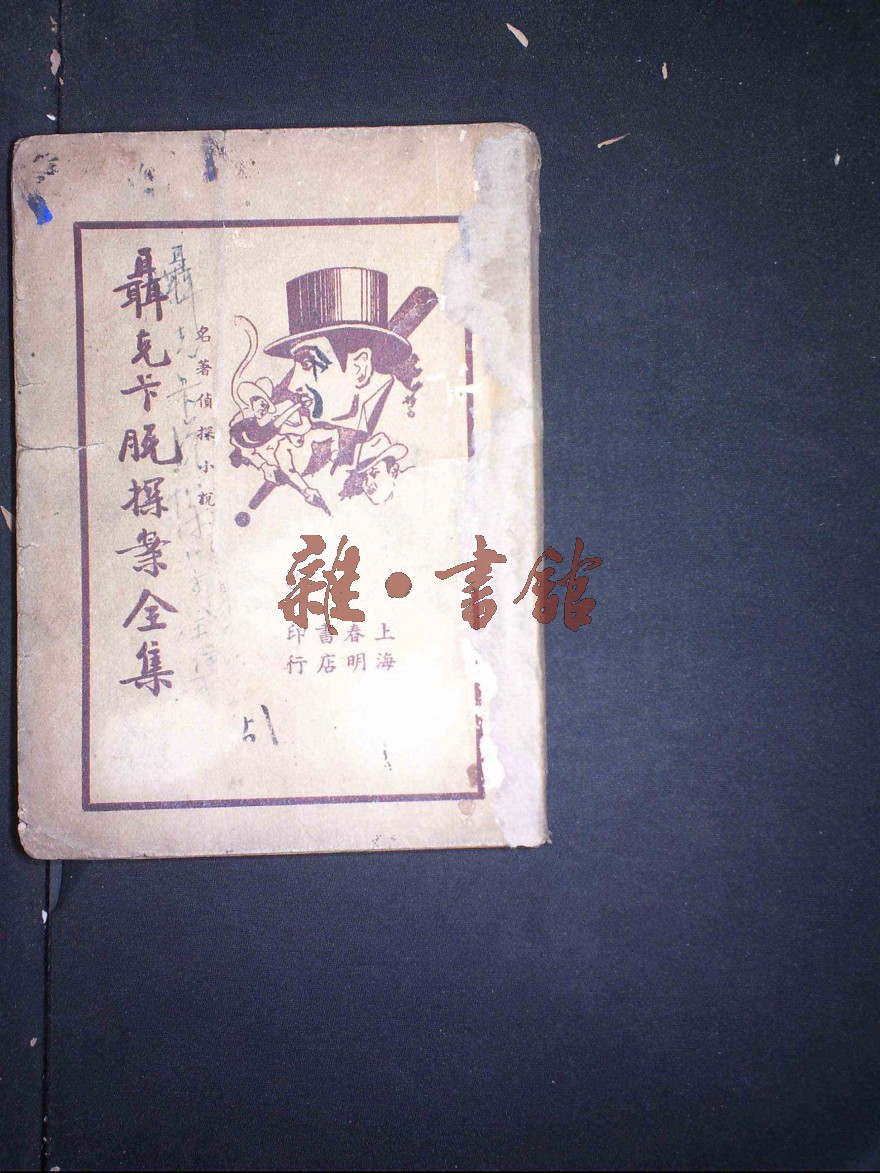 聶克卡脫探案全集
名著偵探小說
雜·書館
上海
春明
書店
印行